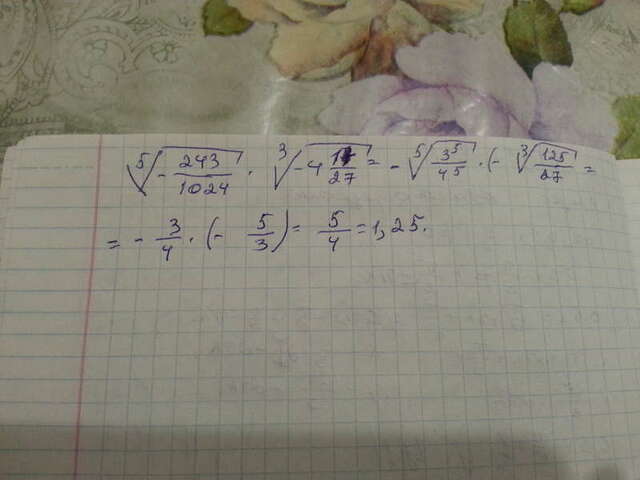 ⁵√(-243/1024) · ³√(-4 17/27) = - ⁵√(3⁵/4⁵) · (- ³√(125/27) =
= - 3/4 · (- 5/3) = 5/4 = 1,25.